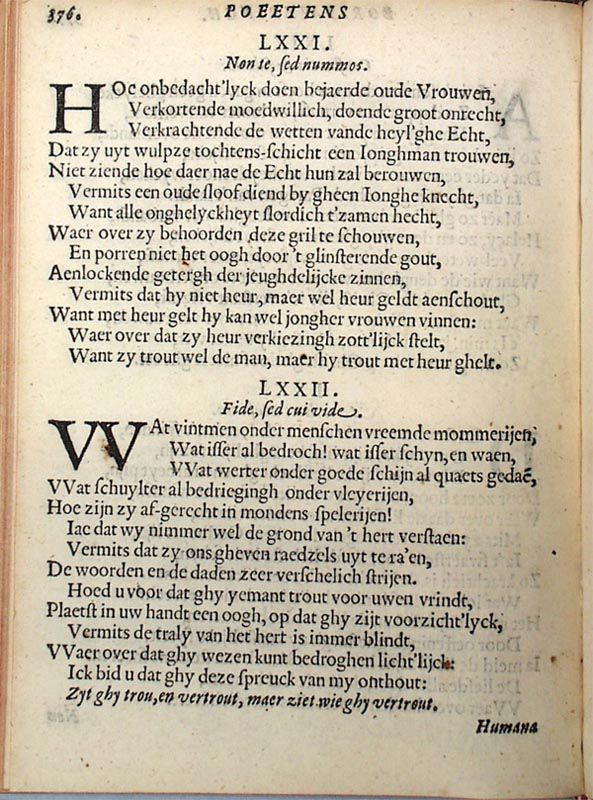 376. POEETENS
LXXI.
Non te, ſed nummos.
HOe onbedacht'lyck doen bejaerde oude Vrouwen,
Verkortende moedwillich, doende groot onrecht,
Verkrachtende de wetten vande heyl'ghe Echt,
Dat zy uyt wulpze tochtens-ſchicht een Ionghman trouwen,
Niet ziende hoe daer nae de Echt hun zal berouwen,
Vermits een oude ſloof diend by gheen Ionghe knecht,
Want alle onghelyckheyt ſlordich t'zamen hecht,
Waer over zy behoorden deze gril te ſchouwen,
En porren niet het oogh door 't glinſterende gout,
Aenlockende getergh der jeughdelijcke zinnen,
Vermits dat hy niet heur, maer wel heur geldt aenſchout,
Want met heur gelt hy kan wel jongher vrouwen vinnen:
Waer over dat zy heur verkiezingh zott'lijck ſtelt,
Want zy trout wel de man, maer hy trout met heur ghelt.
LXXII.
Fide, ſed cui vide.
VVAt vintmen onder menſchen vreemde mommerijen,
Wat iſſer al bedroch! wat iſſer ſchyn, en waen,
VVat werter onder goede ſchijn al quaets gedaē,
VVat ſchuylter al bedriegingh onder vleyerijen,
Hoe zijn zy af-gerecht in mondens ſpelerijen!
Iae dat wy nimmer wel de grond van 't hert verſtaen:
Vermits dat zy ons gheven raedzels uyt te ra'en,
De woorden en de daden zeer verſchelich ſtrijen.
Hoed u voor dat ghy yemant trout voor uwen vrindt,
Plaetſt in uw handt een oogh, op dat ghy zijt voorzicht'lyck,
Vermits de traly van het hert is immer blindt,
VVaer over dat ghy wezen kunt bedroghen licht'lijck:
Ick bid u dat ghy deze ſpreuck van my onthout:
Zyt ghy trou, en vertrout, maer ziet wie ghy vertrout.
Humana